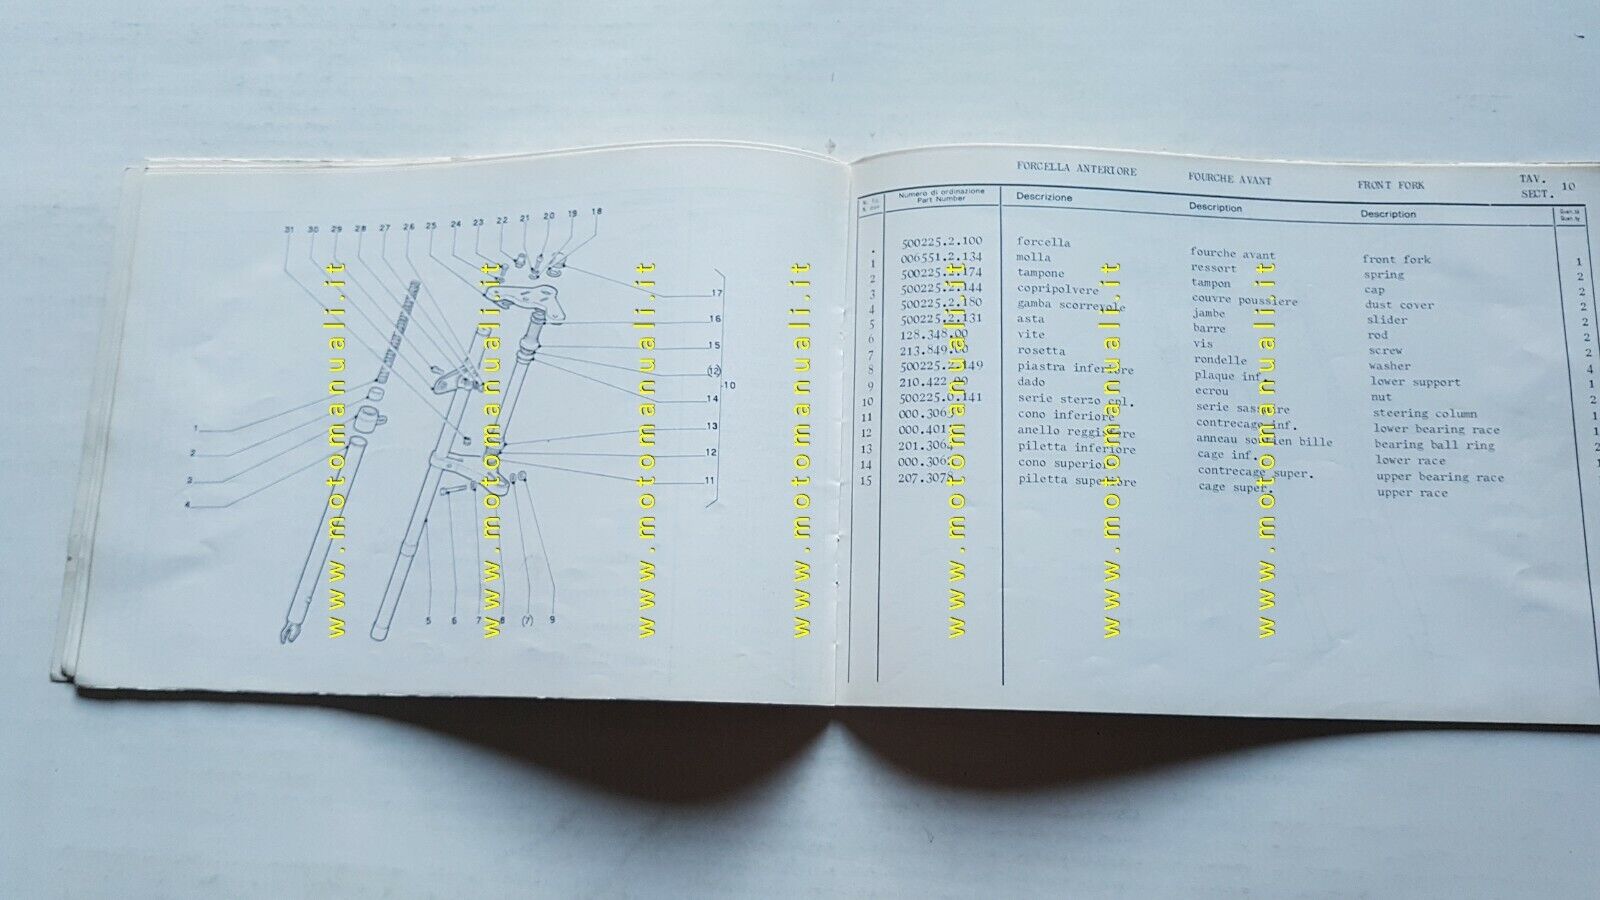 31 30 29 28 27 26 25 24 23 22 21 20 19 18
17
16
15
(12)
10
14
13
12
11
1
2
3
4
5 6 7 8 (7) 9
FORCELLA ANTERIORE FOURCHE AVANT FRONT FORK TAV. 10
SECT.
Numero di ordinazione Descrizione Description Description
Part Number
. 500225.2.100 forcella fourche avant front fork 1
1 006551.2.134 molla ressort spring 2
2 500225.2.174 tampone tampon cap 2
3 500225.2.144 copripolvere couvre poussiere dust cover 2
4 500225.2.180 gamba scorrevole jambe slider 2
5 500225.2.131 asta barre rod 2
6 128.348.00 vite vis screw 2
7 213.849.00 rosetta rondelle washer 4
8 500225.2.149 piastra inferiore plaque inf. lower support 1
9 210.422.00 dado ecrou nut 2
10 500225.0.141 serie sterzo cpl. serie steering column 1
11 cono inferiore contrecage inf. lower bearing race 1
12 anello reggisfere anneau soutien bille bearing ball ring 2
13 piletta inferiore cage inf. lower race
14 cono superiore contrecage super. upper bearing race
15 207.3078 piletta superiore cage super. upper race
www.motomanuali.it
www.motomanuali.it
www.motomanuali.it
www.motomanuali.it
www.motomanuali.it
www.motomanuali.it
www.motomanuali.it